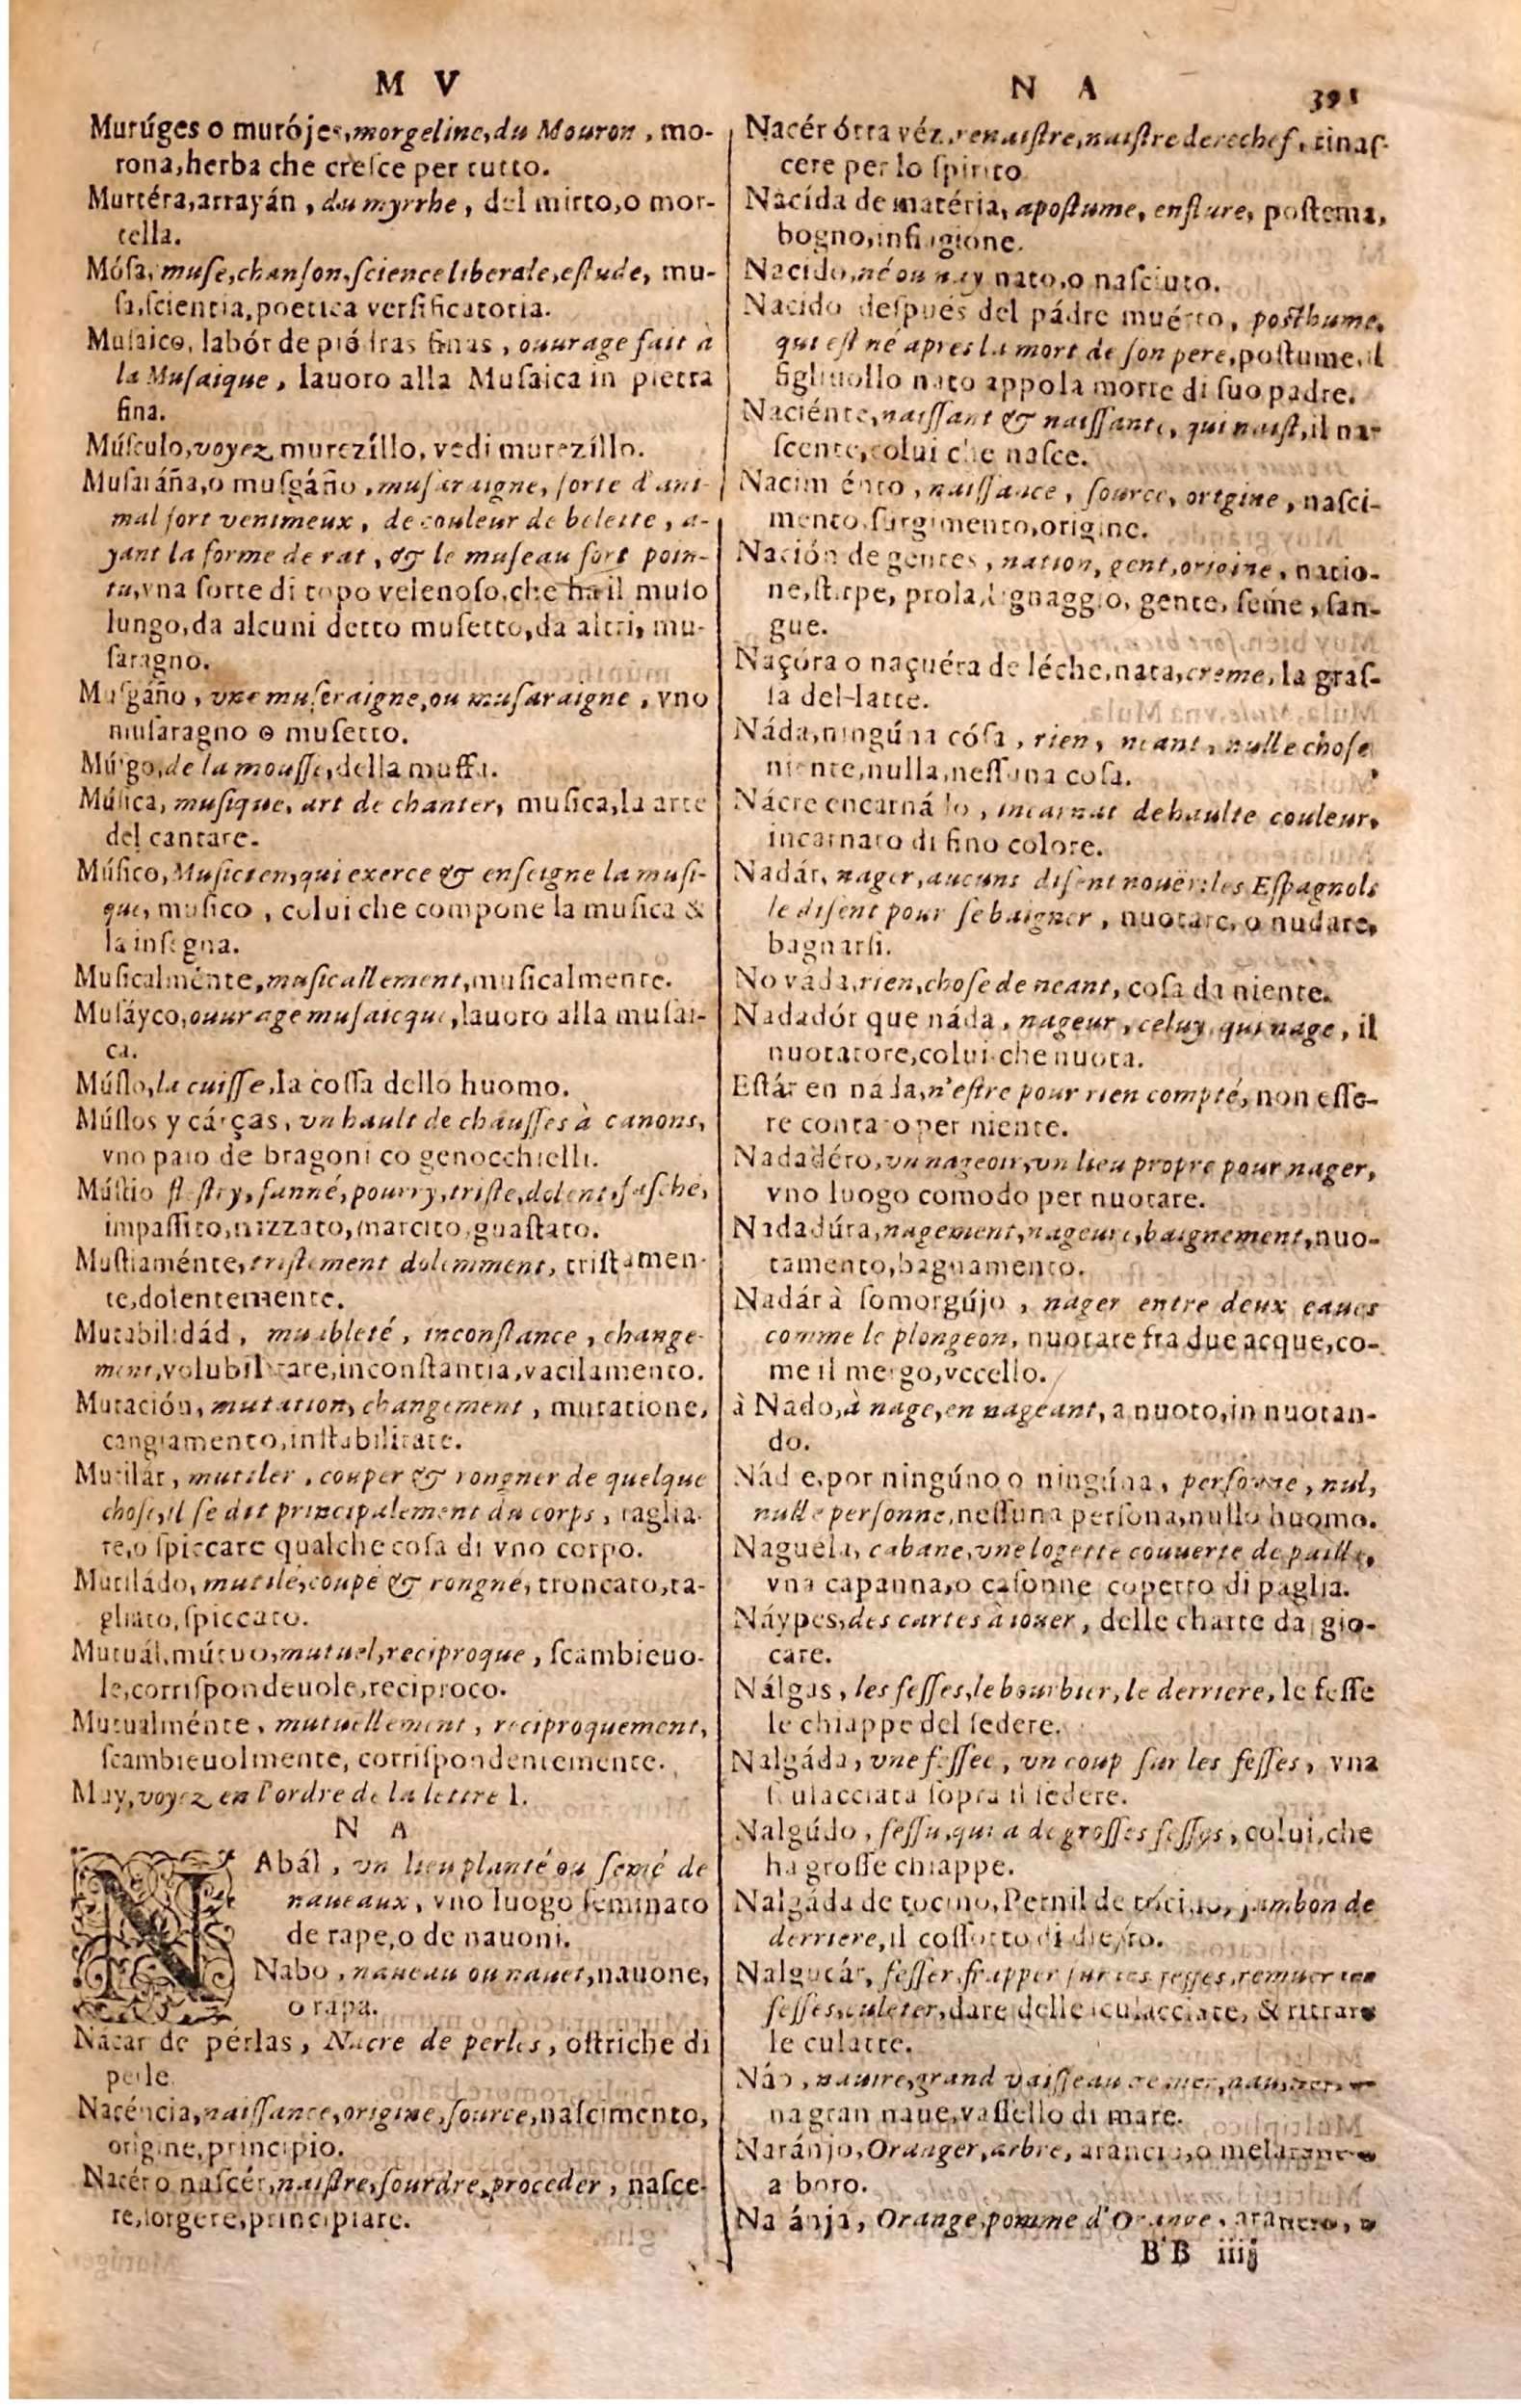 M V
Murúges o murójes, morgeline, du Mouron, mo-
rona, herba che cresce per tutto.
Murtéra, arrayán, du myrrhe, del mirto, o mor-
tella.
Mósa, muse, chanson, science liberale, estude, mu-
sa, scientia, poetica versificatoria.
Musaico, labór de piédras finas, ouurage fait à
la Musaique, lauoro alla Musaica in pietra
fina.
Músculo, voyez murezíllo, vedi murezíllo.
Musaráña, o musgáño, musaraigne, sorte d'ani-
mal fort venimeux, de couleur de belette, a-
yant la forme de rat, & le museau fort poin-
tu, vna sorte di topo velenoso, che ha il muso
lungo, da alcuni detto musetto, da altri, mu-
saragno.
Musgáño, vne museraigne, ou musaraigne, vno
musaragno o musetto.
Músgo, de la mousse, della muffa.
Música, musique, art de chanter, musica, la arte
del cantare.
Músico, Musicien, qui exerce & enseigne la musi-
que, musico, colui che compone la musica &
la insegna.
Musicalménte, musicallement, musicalmente.
Musáyco, ouurage musaicque, lauoro alla musai-
ca.
Múslo, la cuisse, la cossa dello huomo.
Múslos y cárças, vn hault de chausses à canons,
vno paio de bragoni co genocchielli.
Mústio flestry, fanné, pourry, triste, dolent, fasché,
impassito, nizzato, marcito, guastato.
Mustiaménte, tristement dolemment, tristamen-
te, dolentemente.
Mutabilidád, muableté, inconstance, change-
ment, volubilitate, inconstantia, vacilamento.
Mutación, mutation, changement, mutatione,
cangiamento, instabilitate.
Mutilár, mutiler, couper & rongner de quelque
chose, il se dit principalement du corps, taglia-
re, o spiccare qualche cosa di vno corpo.
Mutiládo, mutilé, coupé & rongné, troncato, ta-
gliato, spiccato.
Mutuál, mútuo, mutuel, reciproque, scambieuo-
le, corrispondeuole, reciproco.
Mutualménte, mutuellement, reciproquement,
scambieuolmente, corrispondentemente.
Muy, voyez en l'ordre de la lettre I.
N A
NAbál, vn lieu planté ou semé de
naueaux, vno luogo seminato
de rape, o de nauoni.
Nabo, naueau ou nauet, nauone,
o rapa.
Nácar de pérlas, Nacre de perles, ostriche di
perle.
Nacéncia, naissance, origine, source, nascimento,
origine, principio.
Nacér o nascér, naistre, sourdre, proceder, nasce-
re, sorgere, principiare.
N A 391
Nacér ótra véz, renaistre, naistre derechef, rinas-
cere per lo spirito
Nacída de matéria, apostume, enflure, postema,
bogno, infiagione.
Nacído, né ou nay nato, o nasciuto.
Nacído después del pádre muérto, posthume,
qui est né apres la mort de son pere, postume, il
figliuollo nato appo la morte di suo padre.
Naciénte, naissant & naissante, qui naist, il na-
scente, colui che nasce.
Nacimiénto, naissance, source, origine, nasci-
mento, surgimento, origine.
Nación de gentes, nation, gent, origine, natio-
ne, stirpe, prola, lignaggio, gente, seme, san-
gue.
Naçóra o naçuéra de léche, nata, creme, la gras-
sa del latte.
Náda, ningúna cósa, rien, neant, nulle chose,
niente, nulla, nessuna cosa.
Nácre encarnádo, incarnat de haulte couleur,
incarnato di fino colore.
Nadár, nager, aucuns disent nouër: les Espagnols
le disent pour se baigner, nuotare, o nudare,
bagnarsi.
No váda, rien, chose de neant, cosa da niente.
Nadadór que náda, nageur, celuy qui nage, il
nuotatore, colui che nuota.
Estár en náda, n'estre pour rien compté, non esse-
re contato per niente.
Nadadéro, vn nageoir, vn lieu propre pour nager,
vno luogo comodo per nuotare.
Nadadúra, nagement, nageure, baignement, nuo-
tamento, bagnamento.
Nadár à somorgújo, nager entre deux eaues
comme le plongeon, nuotare fra due acque, co-
me il mergo, vccello.
à Nado, à nage, en nageant, a nuoto, in nuotan-
do.
Nádie, por ningúno o ningúna, personne, nul,
nulle personne, nessuna persona, nullo huomo.
Naguela, cabane, vne logette couuerte de paille,
vna capanna, o casonne coperto di paglia.
Náypes, des cartes à iouer, delle charte da gio-
care.
Nálgas, les fesses, le bourbier, le derriere, le fesse
le chiappe del sedere.
Nalgáda, vne fessee, vn coup sur les fesses, vna
sculacciata sopra il sedere.
Nalgúdo, fessu, qui a de grosses fesses, colui, che
ha grosse chiappe.
Nalgáda de tocino, Pernil de tócino, jambon de
derriere, il cossotto di dietro.
Nalgueár, fesser, frapper sur les fesses, remuer les
fesses, culeter, dare delle sculacciate, & ritrare
le culatte.
Náo, nauire, grand vaisseau de mer,
na gran naue, vassello di mare.
Naránjo, Oranger, arbre, arancio, o melarancio
a boro.
Naránja, Orange, pomme d'Orange, arancro, o
BB iiij